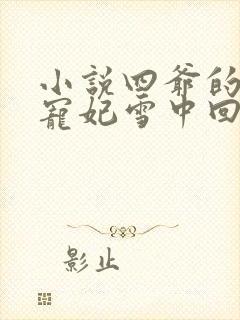 小說四爺的
寵妃雪中回
影止